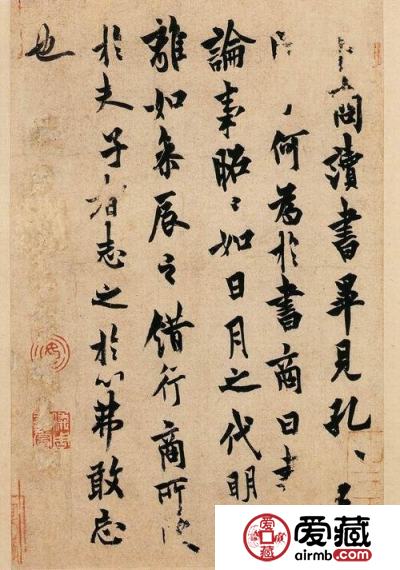 卜商讀書畢見孔、子
何為於書商曰書
論事昭〻如日月之代明
離如參辰之錯行商所受
於夫子者志之於心弗敢忘
也
爱藏
airmb.com